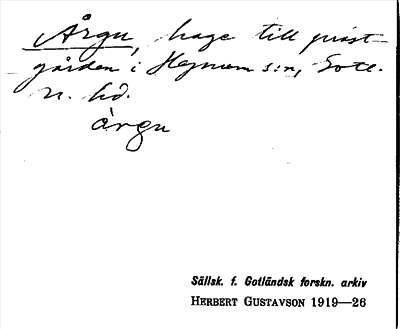 Årgu, hage till präst-
gården i Hejnum s:n, Gotl.
n. hd.
àrgu
Sällsk. f. Gotländsk forskn. arkiv
HERBERT GUSTAVSON 1919—26